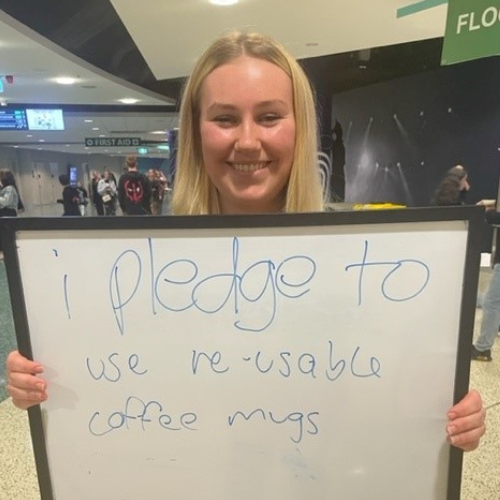 FLOO
FIRST AID
i pledge to
use re-usable
coffee mugs